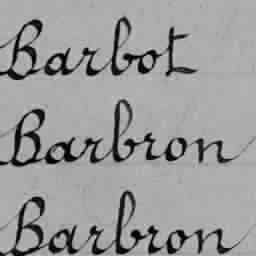 Barbot
Barbron
Barbron